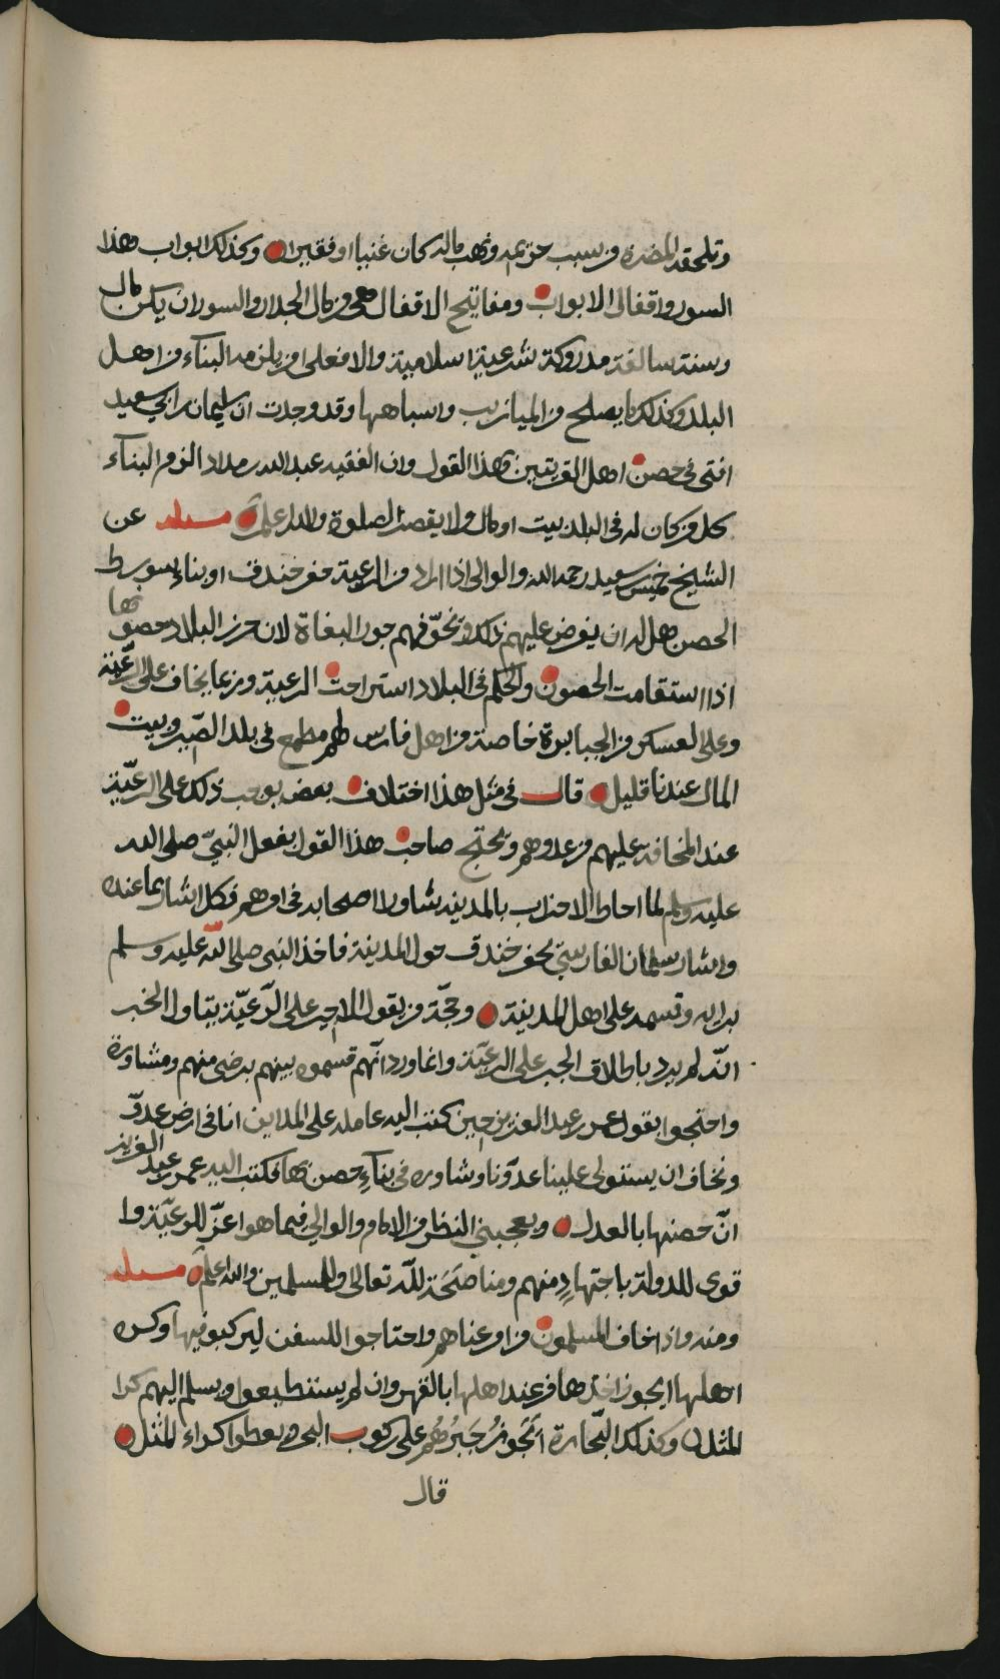 وتلحقه المضرة من سبب حريمه ونهب ماله كان غنيا او فقيرا وكذلك ابواب هذا
السور واقفال الابواب ومفاتيح الاقفال هي من مال الجدار والسور ان يكن مال
وسنة سالفة مدروكة شرعية اسلامية والا فعلى من يلزمه البناء من اهل
البلد وكذلك ما يصلح من الميازيب واسباهها وقد وجدت ان سليمان بن ابي سعيد
افتى في حصن اهل القريتين بهذا القول وان الفقيه عبد الله بن مداد الزم البناء
كل من كان له في البلد بيت او مال ولا يقصر الصلوة والله اعلم مسله عن
الشيخ خميس بن سعيد رحمه الله والوالي اذا اراد من الرعية حفر خندف او بناء سور سط
الحصن هل له ان يفرض عليهم ذلك وتخوّفهم جور البغاة لان حرز البلاد حصونها
اذا استقامت الحصون والحكم في البلاد استراحت الرعية وربما يخاف على الرعّية
وعلى العسكر من الجبابرة خاصة من اهل فارس لهم مطمع في بلد الصّير وبيت
المال عندنا قليل قال في مثل هذا اختلاف بعض يوجب ذلك على الرعيّة
عند المخافة عليهم من عدوهم ويحتج صاحب هذا القول بفعل النبيّ صلى الله
عليه وسلم لما احاط الاحزاب بالمدينة شاور اصحابه في امرهم فكل اشار بما عنده
واشار سلمان الفارسيّ بحفر خندق حول المدينة فاخذ النبي صلى الله عليه وسلم
برايه وقسمه على اهل المدينة وحجّة من يقول لا جبر على الرّعيّة يتاول الخبر
انّه لم يرد باطلاق الجبر على الرعيّة وانما ورد انّهم قسموه بينهم برضى منهم ومشاورة
واحتجوا بقول عمر بن عبد العزيز حين كتب اليه عامله على المداين انا في ارض عدوّ
ونخاف ان يستولي علينا عدوّنا وشاوره في بناء حصن بها فكتب اليه عمر بن عبد العزيز
انّ حصنها بالعدل ويعجبني النظر من الامام والوالي فيما هو اعزّ للرعيّة وا
قوى للدولة باجتهادٍ منهم ومناصَحَة للّه تعالى وللمسلمين والله اعلم مسله
ومنه واذا خاف المسلمون من امر عناهم واحتاجوا للسفن ليركبو فيها وكره
اهلها ايجوز اخذها من عند اهلها بالقهر وان لم يستطيعوا ويسلم اليهم كرا
المثل وكذلك البّحارة اَتَجوزُ جَبرُهُم على ركوب البحر ويعطوا كراء المثل
قال